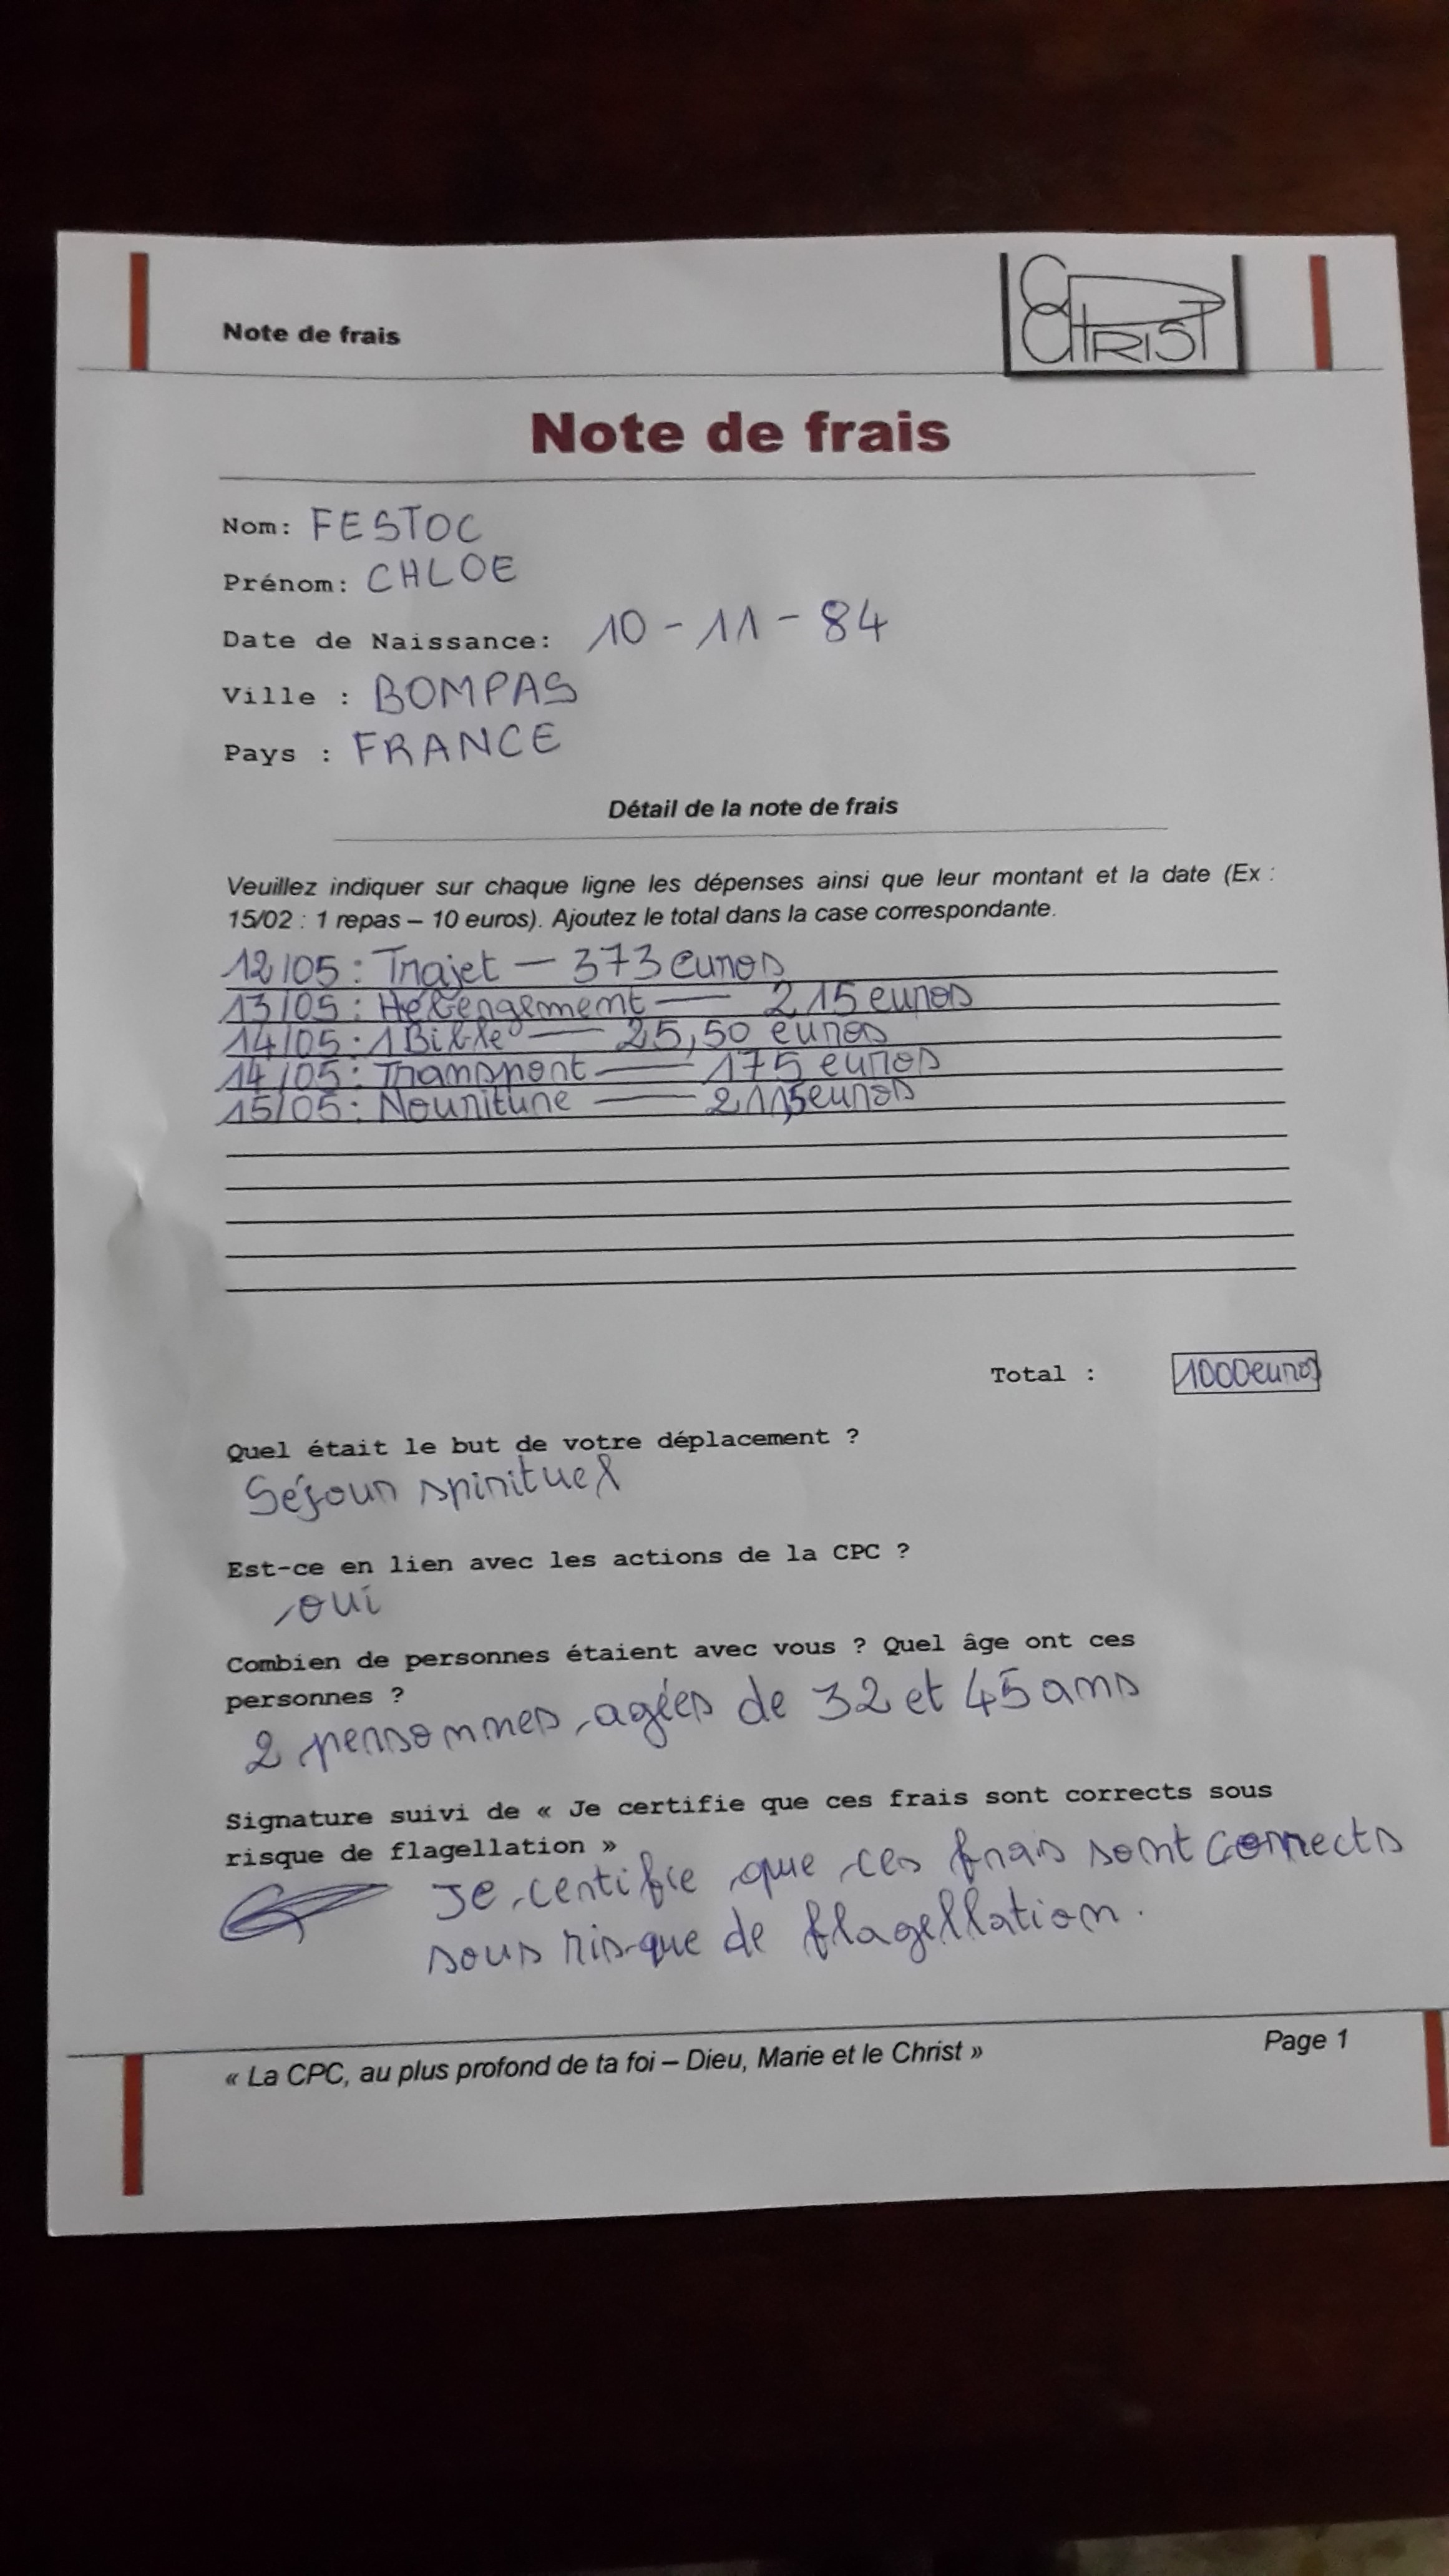 Note de frais
CHRIST
Note de frais
Nom: FESTOC
Prénom: CHLOE
Date de Naissance: 10-11-84
Ville : BOMPAS
Pays : FRANCE
Détail de la note de frais
Veuillez indiquer sur chaque ligne les dépenses ainsi que leur montant et la date (Ex :
15/02 : 1 repas – 10 euros). Ajoutez le total dans la case correspondante.
12/05 : Trajet — 373 euros
13/05 : Hébergement — 215 euros
14/05 : 1 Bible — 25,50 euros
14/05 : Transport — 175 euros
15/05 : Nourriture — 211,5 euros
Total : 1000 euros
Quel était le but de votre déplacement ?
Séjour spirituel
Est-ce en lien avec les actions de la CPC ?
oui
Combien de personnes étaient avec vous ? Quel âge ont ces
personnes ?
2 personnes agées de 32 et 45 ans
Signature suivi de « Je certifie que ces frais sont corrects sous
risque de flagellation »
Je certifie que ces frais sont corrects
sous risque de flagellation.
« La CPC, au plus profond de ta foi – Dieu, Marie et le Christ »
Page 1